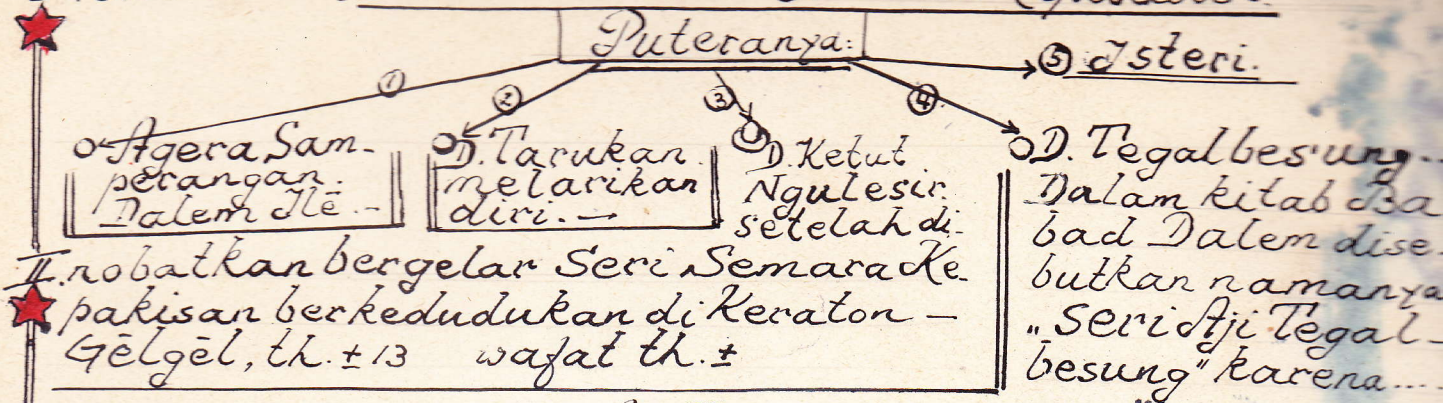 Puteranya:
① ② ③ ④ ⑤ Isteri.
Agera Sam-
perangan.
Dalem Ilē.-
D. Tarukan
melarikan
diri. —
D. Ketut
Ngulesir.
setelah di-
II. nobatkan bergelar Seri Semara Ke-
pakisan berkedudukan di Keraton —
Gēlgēl, th. ± 13 wafat th. ±
D. Tegalbesung..
Dalam kitab Ba
bad Dalem dise-
butkan namanya
„Seri Aji Tegal-
besung" karena....